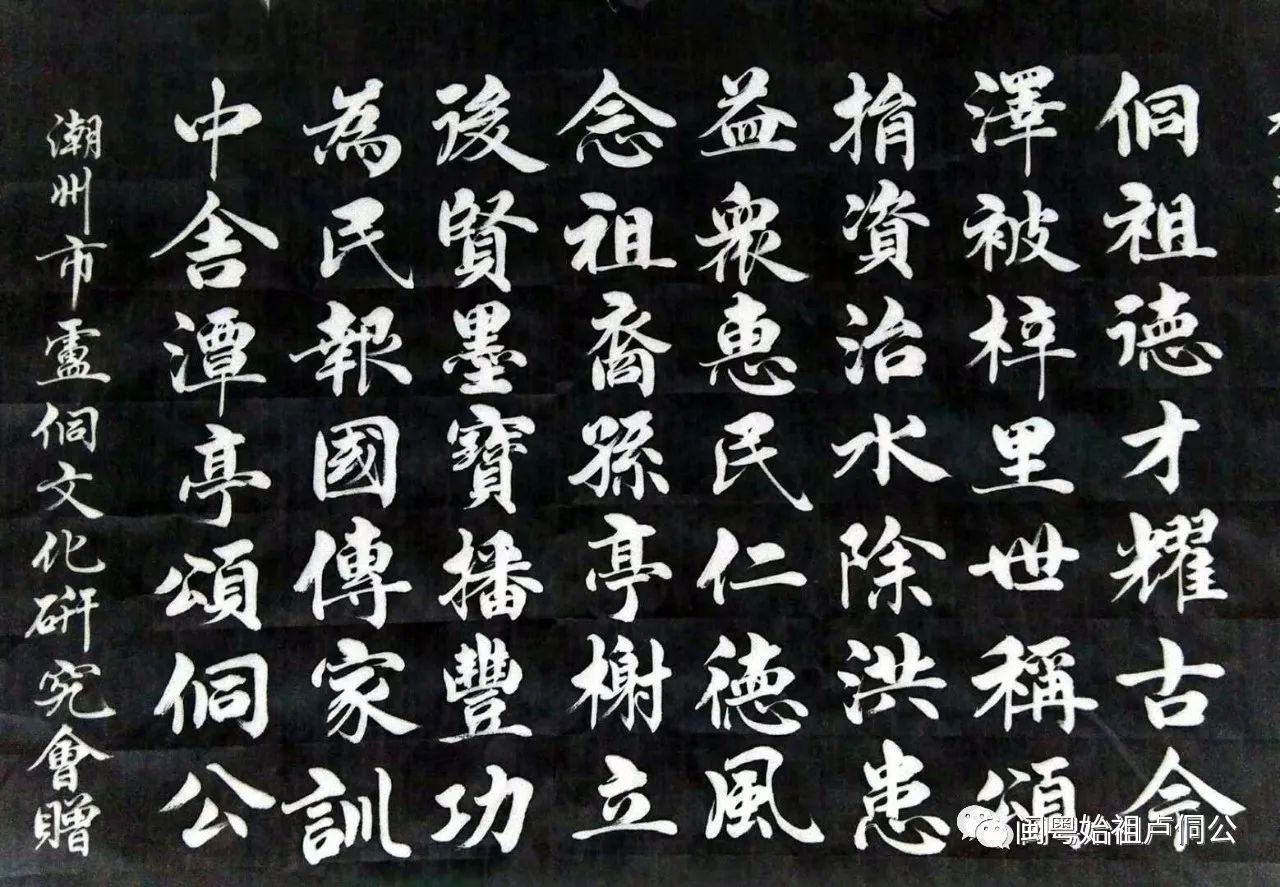 侗祖德才耀古今
澤被梓里世稱頌
捐資治水除洪患
益衆惠民仁德風
念祖裔孫亭榭立
後賢墨寶播豐功
為民報國傳家訓
中舍潭亭頌侗公
潮州市盧侗文化研究會贈
闽粤始祖卢侗公